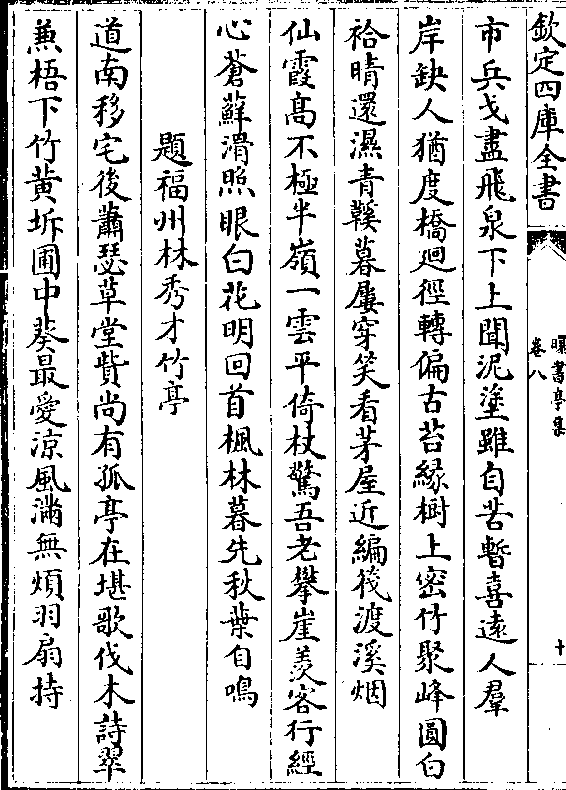 欽定四庫全書
曝書亭集
卷八
十
市兵戈盡飛泉下上聞泥塗雖自苦暫喜遠人羣
岸缺人猶度橋迴徑轉偏古苔緣樹上密竹聚峰圓白
袷晴還濕青鞵暮屢穿笑看茅屋近編筏渡溪烟
仙霞髙不極半嶺一雲平倚杖驚吾老攀崖羨客行經
心蒼蘚滑照眼白花明回首楓林暮先秋葉自鳴
題福州林秀才竹亭
道南移宅後蕭瑟草堂貲尚有孤亭在堪歌伐木詩翠
蕉梧下竹黄坼圃中葵最愛涼風滿無煩羽扇持